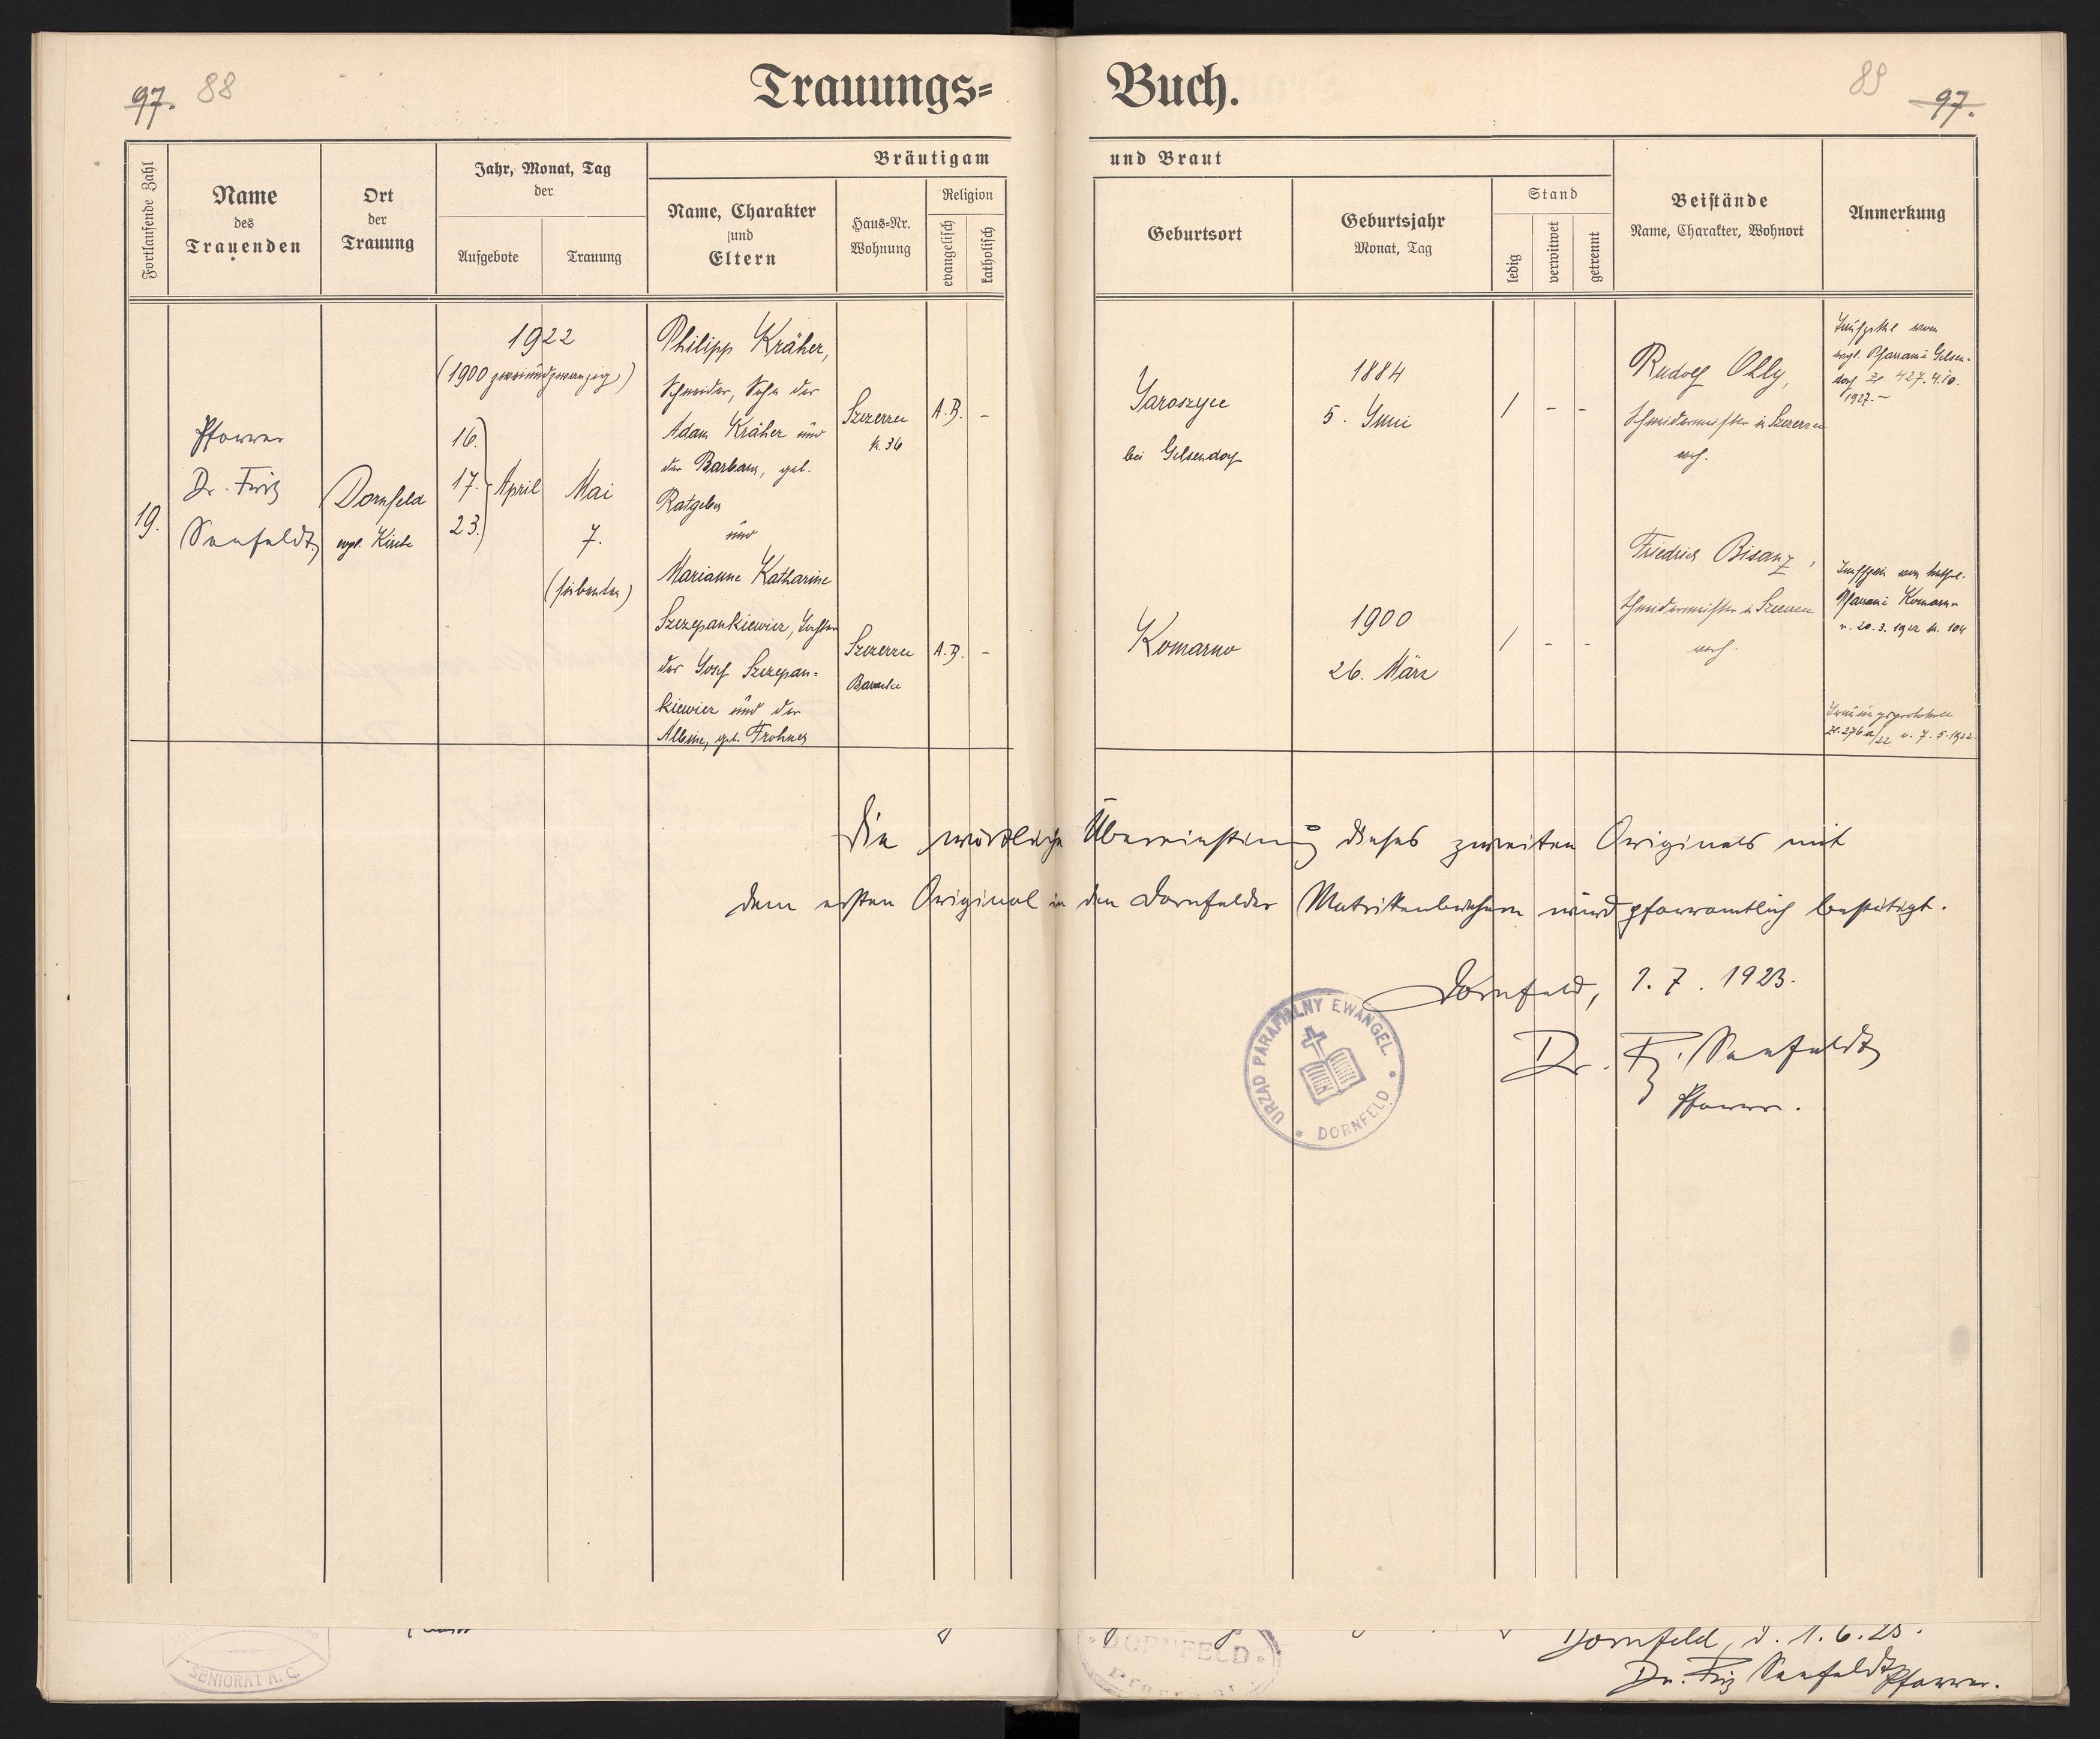 97. 88
Trauungs=
Buch.
89 97.
Fortlaufende Zahl
Name
des
Trauenden
Ort
der
Trauung
Jahr, Monat, Tag
der
Aufgebote
Trauung
Bräutigam
Name, Charakter
und
Eltern
Haus=Nr.
Wohnung
Religion
evangelisch
katholisch
und Braut
Geburtsort
Geburtsjahr
Monat, Tag
Stand
ledig
verwitwet
getrennt
Beistände
Name, Charakter, Wohnort
Anmerkung
19.
Pfarrer
Dr. Fritz
Seefeldt
Dornfeld
evgl. Kirche
1922
(1900 zweiundzwanzig)
16.
17. April
23.
Mai
7.
(siebenten)
Philipp Kräher,
Schneider, Sohn des
Adam Kräher und
der Barbara, geb.
Ratgeber
und
Marianne Katharine
Szczepankiewicz, Tochter
des Josef Szczepan=
kiewicz und der
Albine, geb. Frohner
Szczerzec
N. 36
Szczerzec
Baracke
A.B. -
A.B. -
Jaroszyce
bei Gelsendorf
Komarno
1884
5. Juni
1900
26. März
/ - -
/ - -
Rudolf Ohly,
Schneidermeister in Szczerzec
evg.
Friedrich Bisanz,
Schneidermeister in Szczerzec
evg.
evgl. Pfarramt Gelsen-
dorf Zl. 427. 4.10.
1927.-
Taufschein vom kathol.
Pfarramt Komarno
v. 20.3.1922 N. 104
Trauungsprotokoll
Zl. 276a/22 v. 7.5.1922
Die wörtliche Übereinstimmung dieses zweiten Originals mit
dem ersten Original in den Dornfelder Matrikenbüchern wird pfarramtlich bestätigt.
Dornfeld, 1. 7. 1923.
Dr. Fr. Seefeldt
Pfarrer.
URZĄD PARAFIALNY EWANGEL.
DORNFELD
SENIORAT A. C.
DORNFELD
Dornfeld, d. 1. 6. 23.
Dr. Fritz Seefeldt Pfarrer.